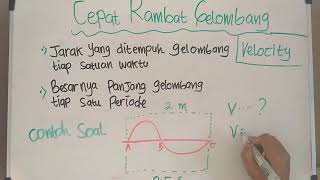 Cepat Rambat Gelombang
Jarak yang ditempuh gelombang
tiap satuan waktu
Velocity
Besarnya Panjang gelombang
tiap satu Periode
2 m
V .... ?
V =
Contoh Soal
A B C